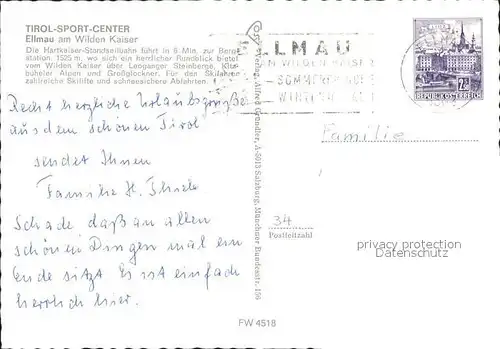 TIROL-SPORT-CENTER
Ellmau am Wilden Kaiser
Die Hartkaiser-Standseilbahn führt in 8 Min. zur Berg-
station, 1525 m, wo sich ein herrlicher Rundblick bietet
vom Wilden Kaiser über Leoganger Steinberge, Kitz-
büheler Alpen und Großglockner. Für den Skifahrer
zahlreiche Skilifte und schneesichere Abfahrten.
ELLMAU
AM WILDEN KAISER
SOMMER
WINTER
REPUBLIK ÖSTERREICH
Recht herzliche Urlaubsgrüße
aus dem schönen Tirol
sendet Ihnen
Familie H. Thiele
Schade, daß an allen
schönen Dingen mal ein
Ende sitzt. Es ist einfach
herrlich hier.
Verlag Alfred Gründler, A-5013 Salzburg, Münchner Bundesstr. 156
Familie
34
Postleitzahl
privacy protection
Datenschutz
FW 4518